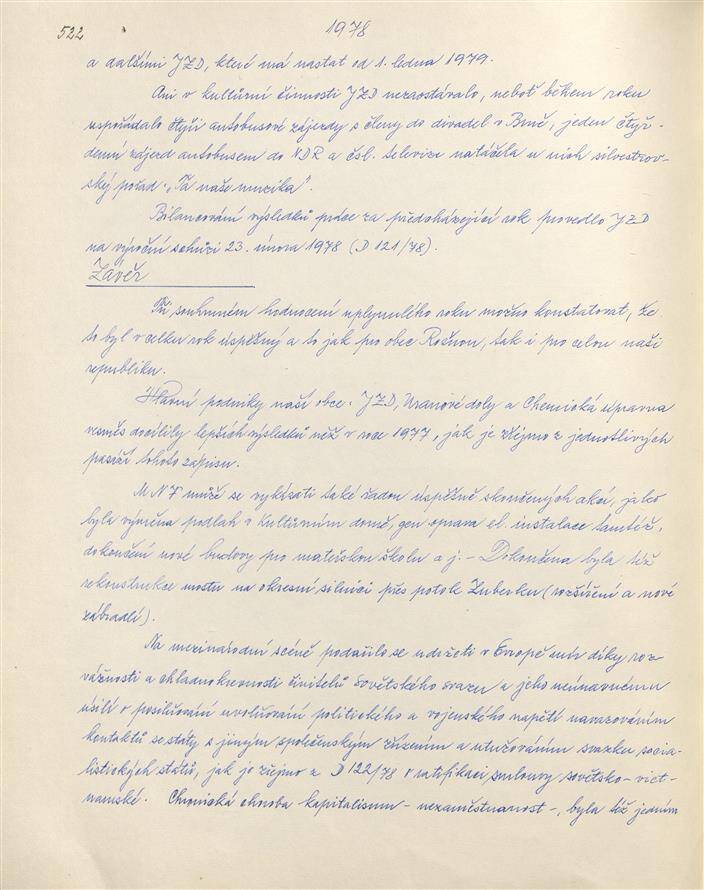 522
1978
a dalšími JZD, které má nastat od 1. ledna 1979.
Ani v kulturní činnosti JZD nezaostávalo, neboť během roku
uspořádalo čtyři autobusové zájezdy s členy do divadel v Brně, jeden čtyř-
denní zájezd autobusem do NDR a čsl. televize natáčela u nich silvestrov-
ský pořad "Ta naše muzika".
Bilancování výsledků práce za předcházející rok provedlo JZD
na výroční schůzi 23. února 1978 (D 121/78).
Závěr
Při souhrnném hodnocení uplynulého roku možno konstatovat, že
to byl v celku rok úspěšný a to jak pro obec Rožnou, tak i pro celou naši
republiku.
Hlavní podniky naší obce: JZD, Uranové doly a Chemická úpravna
vesměs docílily lepších výsledků než v roce 1977, jak je zřejmo z jednotlivých
pasáží tohoto zápisu.
MNV může se vykázati také řadou úspěšně skončených akcí, jako
byla výměna podlah v Kulturním domě, gen. oprava el. instalace tamtéž,
dokončení nové budovy pro mateřskou školu a j. - Dokončena byla též
rekonstrukce mostu na okresní silnici přes potok Zuberku (rozšíření a nové
zábradlí).
Na mezinárodní scéně podařilo se udržeti v Evropě mír díky roz-
vážnosti a chladnokrevnosti činitelů Sovětského svazu a jeho neúnavnému
úsilí v posilování uvolňování politického a vojenského napětí navazováním
kontaktů se státy s jiným společenským zřízením a utužováním svazku socia-
listických států, jak je zřejmo z D 122/78 v ratifikaci smlouvy sovětsko-viet-
namské. Chronická choroba kapitalismu - nezaměstnanost -, byla též jedním